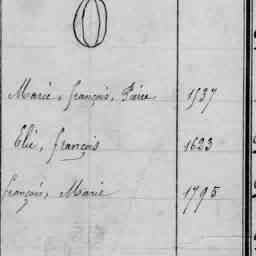 O
Marie, françois, Pierre 1537
Elie, françois 1623
françois, Marie 1795